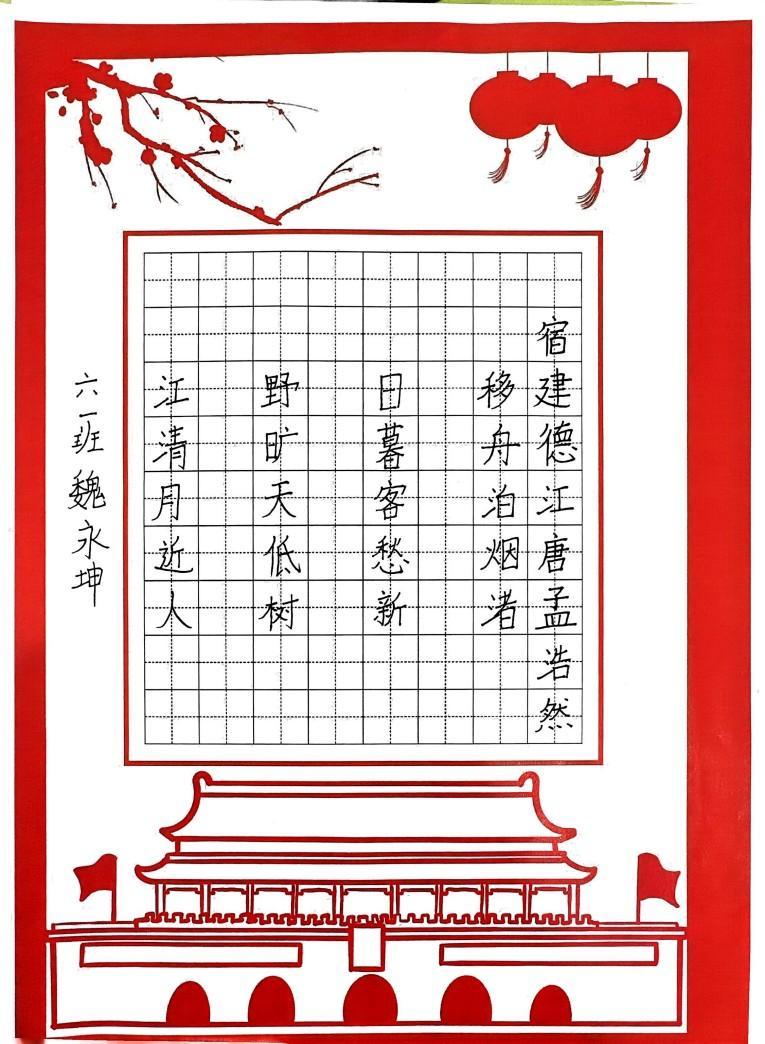 宿建德江唐孟浩然
移舟泊烟渚
日暮客愁新
野旷天低树
江清月近人
六一班魏永坤